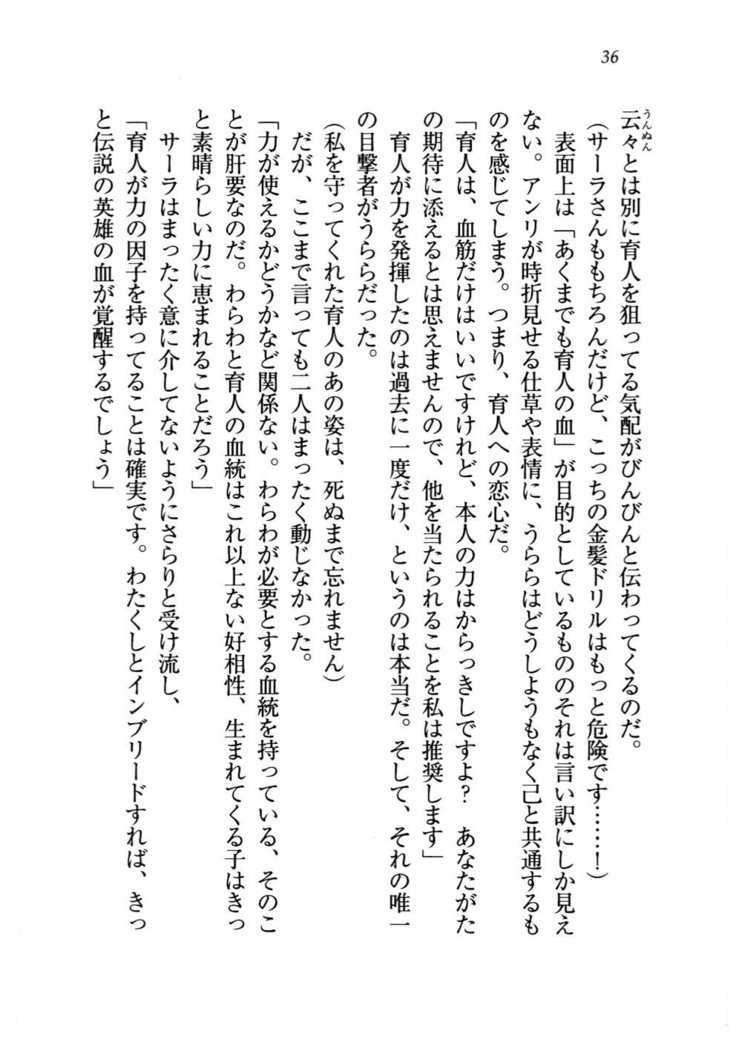 36
云々とは別に育人を狙ってる気配がびんびんと伝わってくるのだ。
うんぬん
(サーラさんももちろんだけど、こっちの金髪ドリルはもっと危険です……！)
表面上は「あくまでも育人の血」が目的としているもののそれは言い訳にしか見え
ない。アンリが時折見せる仕草や表情に、うららはどうしようもなく己と共通するも
のを感じてしまう。つまり、育人への恋心だ。
「育人は、血筋だけはいいですけれど、本人の力はからっきしですよ？　あなたがた
の期待に添えるとは思えませんので、他を当たられることを私は推奨します」
育人が力を発揮したのは過去に一度だけ、というのは本当だ。そして、それの唯一
の目撃者がうららだった。
(私を守ってくれた育人のあの姿は、死ぬまで忘れません)
だが、ここまで言っても二人はまったく動じなかった。
「力が使えるかどうかなど関係ない。わらわが必要とする血統を持っている、そのこ
とが肝要なのだ。わらわと育人の血統はこれ以上ない好相性、生まれてくる子はきっ
と素晴らしい力に恵まれることだろう」
サーラはまったく意に介してないようにさらりと受け流し、
「育人が力の因子を持ってることは確実です。わたくしとインブリードすれば、きっ
と伝説の英雄の血が覚醒するでしょう」